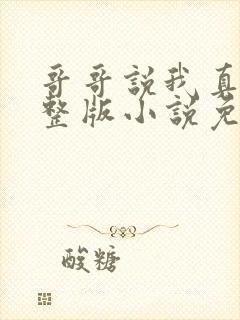 哥哥説我真
整版小説免
酸糖